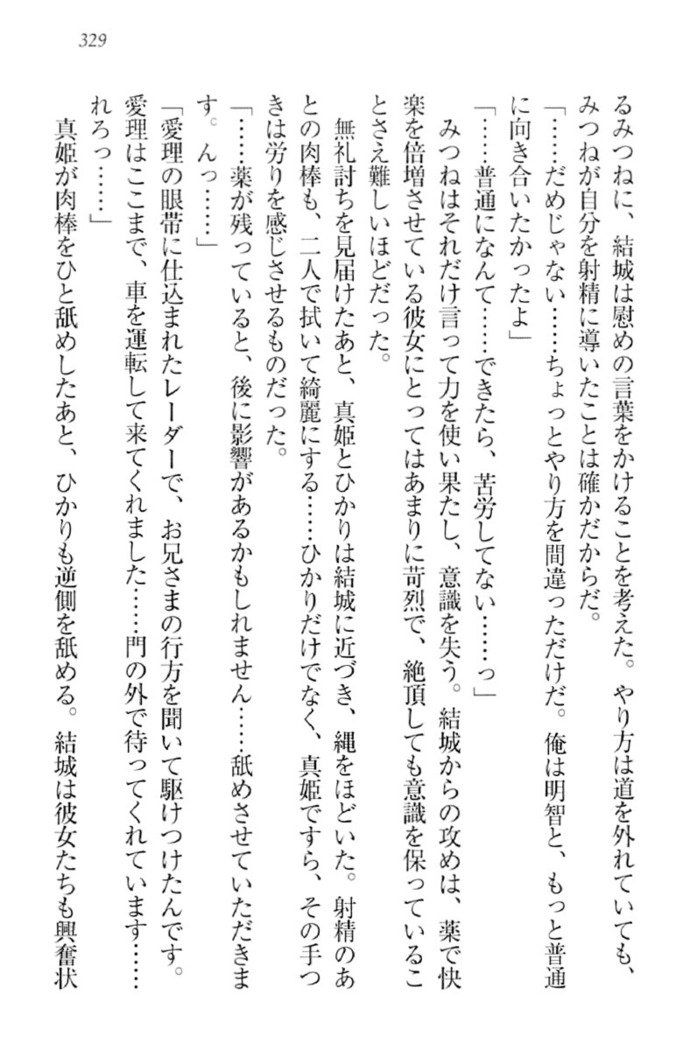 329
るみつねに、結城は慰めの言葉をかけることを考えた。やり方は道を外れていても、
みつねが自分を射精に導いたことは確かだからだ。
「……だめじゃない……ちょっとやり方を間違っただけだ。俺は明智と、もっと普通
に向き合いたかったよ」
「……普通になんて……できたら、苦労してない……っ」
みつねはそれだけ言って力を使い果たし、意識を失う。結城からの攻めは、薬で快
楽を倍増させている彼女にとってはあまりに苛烈で、絶頂しても意識を保っているこ
とさえ難しいほどだった。
無礼討ちを見届けたあと、真姫とひかりは結城に近づき、縄をほどいた。射精のあ
との肉棒も、二人で拭いて綺麗にする……ひかりだけでなく、真姫ですら、その手つ
きは労りを感じさせるものだった。
「……薬が残っていると、後に影響があるかもしれません……舐めさせていただきま
す。んっ……」
「愛理の眼帯に仕込まれたレーダーで、お兄さまの行方を聞いて駆けつけたんです。
愛理はここまで、車を運転して来てくれました……門の外で待ってくれています……
れろっ……」
真姫が肉棒をひと舐めしたあと、ひかりも逆側を舐める。結城は彼女たちも興奮状